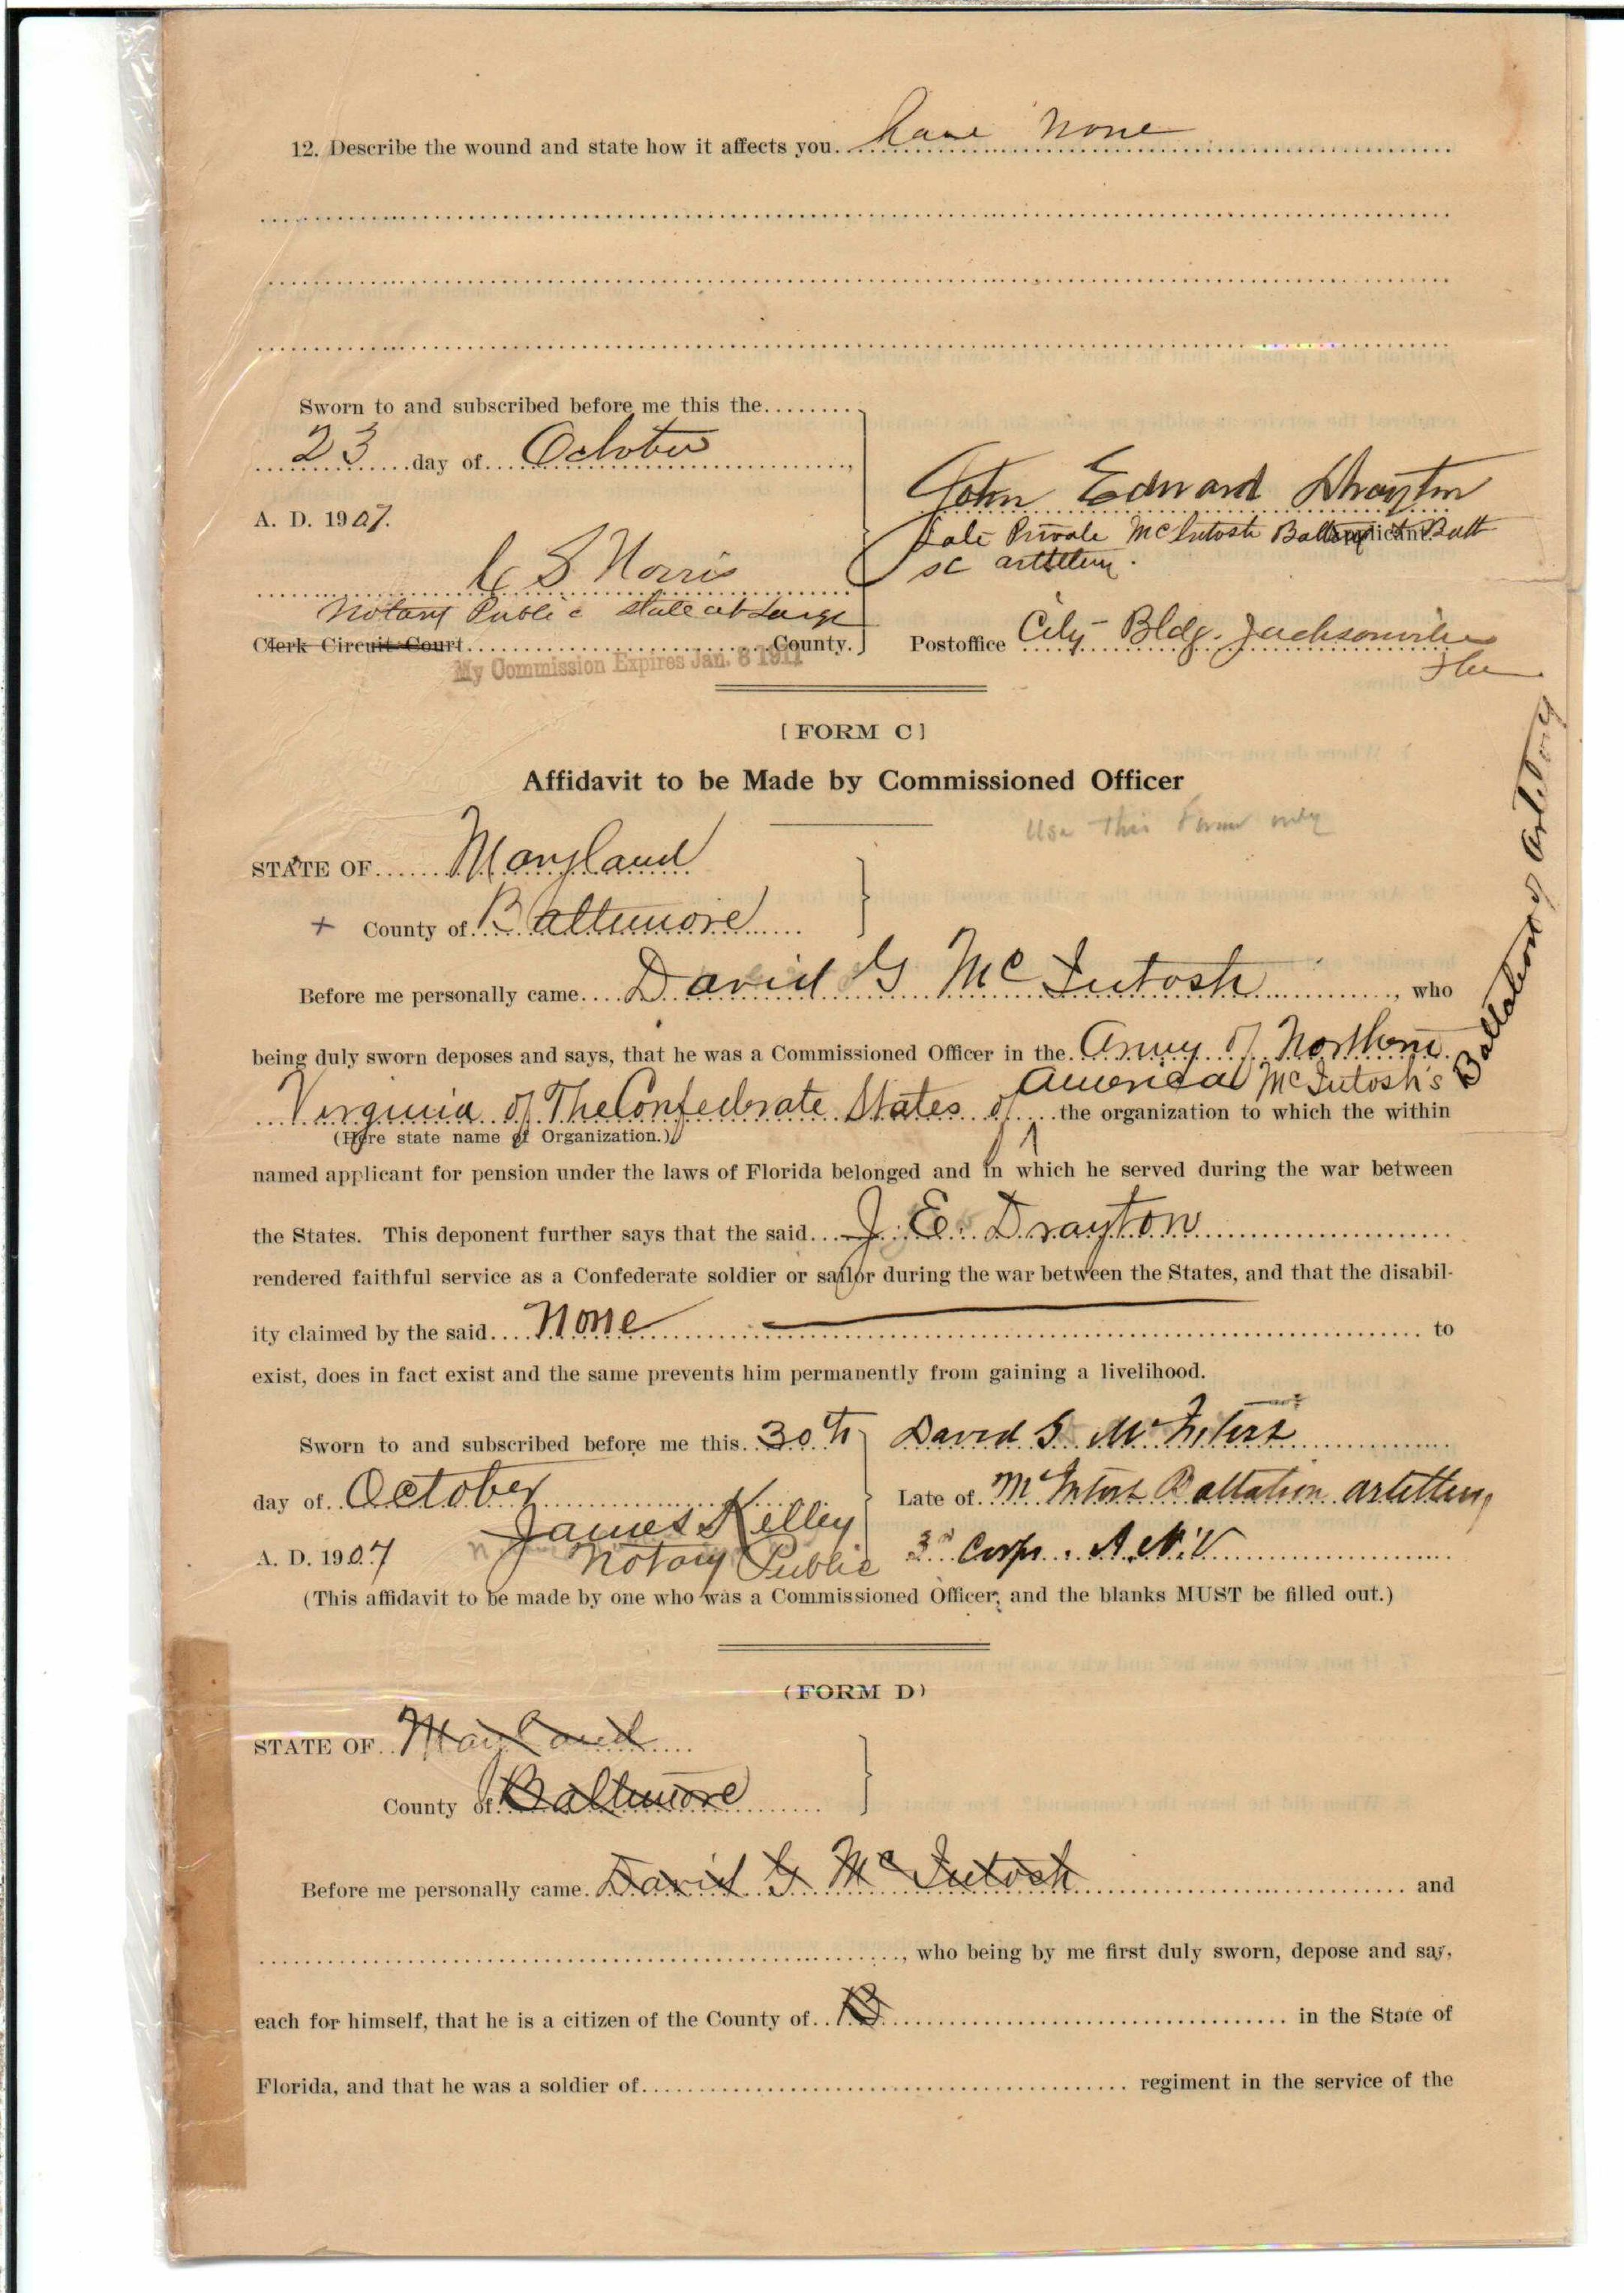 12. Describe the wound and state how it affects you. have none
Sworn to and subscribed before me this the
23 day of October,
A. D. 1907.
C S Norris
Notary Public State at Large
Clerk Circuit Court County.
My Commission Expires Jan. 8 1911
John Edward Drayton
Late Private McIntosh Battery Applicant. Batt
SC artillery.
Postoffice City Bldg. Jacksonville
Fla
[FORM C]
Affidavit to be Made by Commissioned Officer
Use this form only
STATE OF Maryland
+ County of Baltimore
Before me personally came David G McIntosh, who
being duly sworn deposes and says, that he was a Commissioned Officer in the Army of Northern
Virginia of The Confederate States of America McIntosh's Battalion of Artillery the organization to which the within
(Here state name of Organization.)
named applicant for pension under the laws of Florida belonged and in which he served during the war between
the States. This deponent further says that the said J. E. Drayton
rendered faithful service as a Confederate soldier or sailor during the war between the States, and that the disabil-
ity claimed by the said None to
exist, does in fact exist and the same prevents him permanently from gaining a livelihood.
Sworn to and subscribed before me this 30th
day of October
James Kelley
A. D. 1907 Notary Public
David G McIntosh
Late of McIntosh Battalion artillery
3d Corps. A.N.V
(This affidavit to be made by one who was a Commissioned Officer, and the blanks MUST be filled out.)
(FORM D)
STATE OF Maryland
County of Baltimore
Before me personally came David G McIntosh and
, who being by me first duly sworn, depose and say,
each for himself, that he is a citizen of the County of B in the State of
Florida, and that he was a soldier of regiment in the service of the